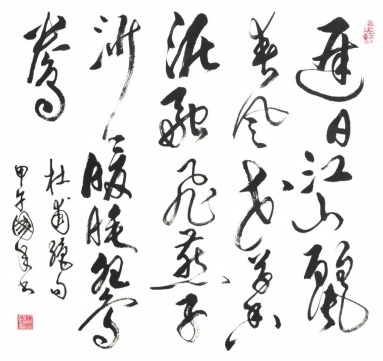 遲日江山麗
春風花草香
泥融飛燕子
沙暖睡鴛
鴦
杜甫絕句
甲午國